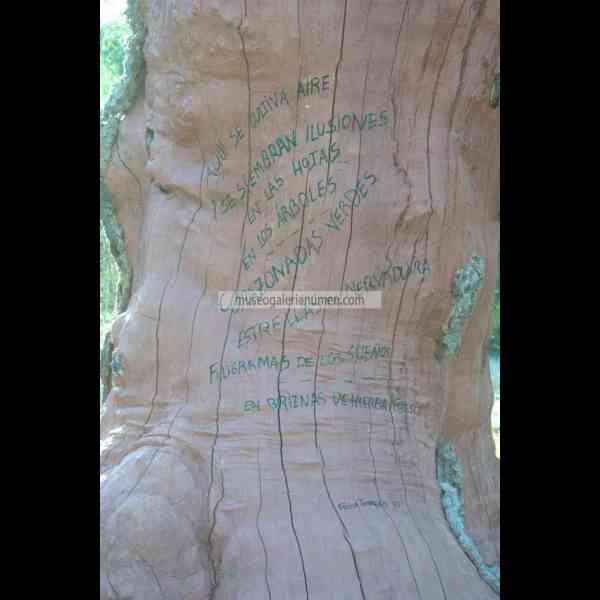 AQUÍ SE CULTIVA AIRE
Y SE SIEMBRAN ILUSIONES
EN LAS HOJAS
EN LOS ÁRBOLES
CORAZONADAS VERDES
museogalerianumen.com
ESTRELLAS NERVADURA
FILIGRAMAS DE LOS SUEÑOS
EN BRIZNAS DE HIERBA